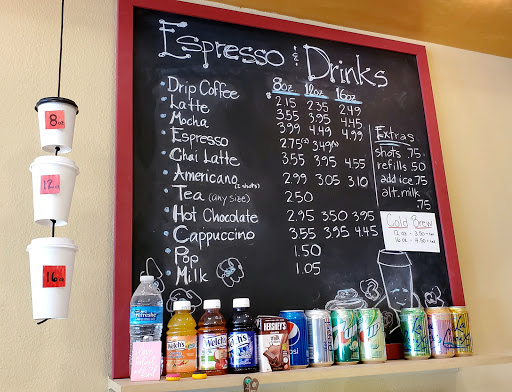 Espresso & Drinks
8oz 12oz 16oz
Drip Coffee 2.15 2.35 2.49
Latte 3.55 3.95 4.45
Mocha 3.99 4.49 4.99
Espresso 2.75 3.49
Chai Latte 3.55 3.95 4.55
Americano (2 shots) 2.99 3.05 3.10
Tea (any size) 2.50
Hot Chocolate 2.95 3.50 3.95
Cappuccino 3.55 3.95 4.45
Pop 1.50
Milk 1.05
Extras
shots .75
refills .50
add ice .75
alt. milk
.75
Cold Brew
12 oz - 3.50
16 oz - 4.50
8 oz
12 oz
16 oz
refreshe
Welch's
Welch's
Welch's
HERSHEY'S
milk
pepsi
7up
7up